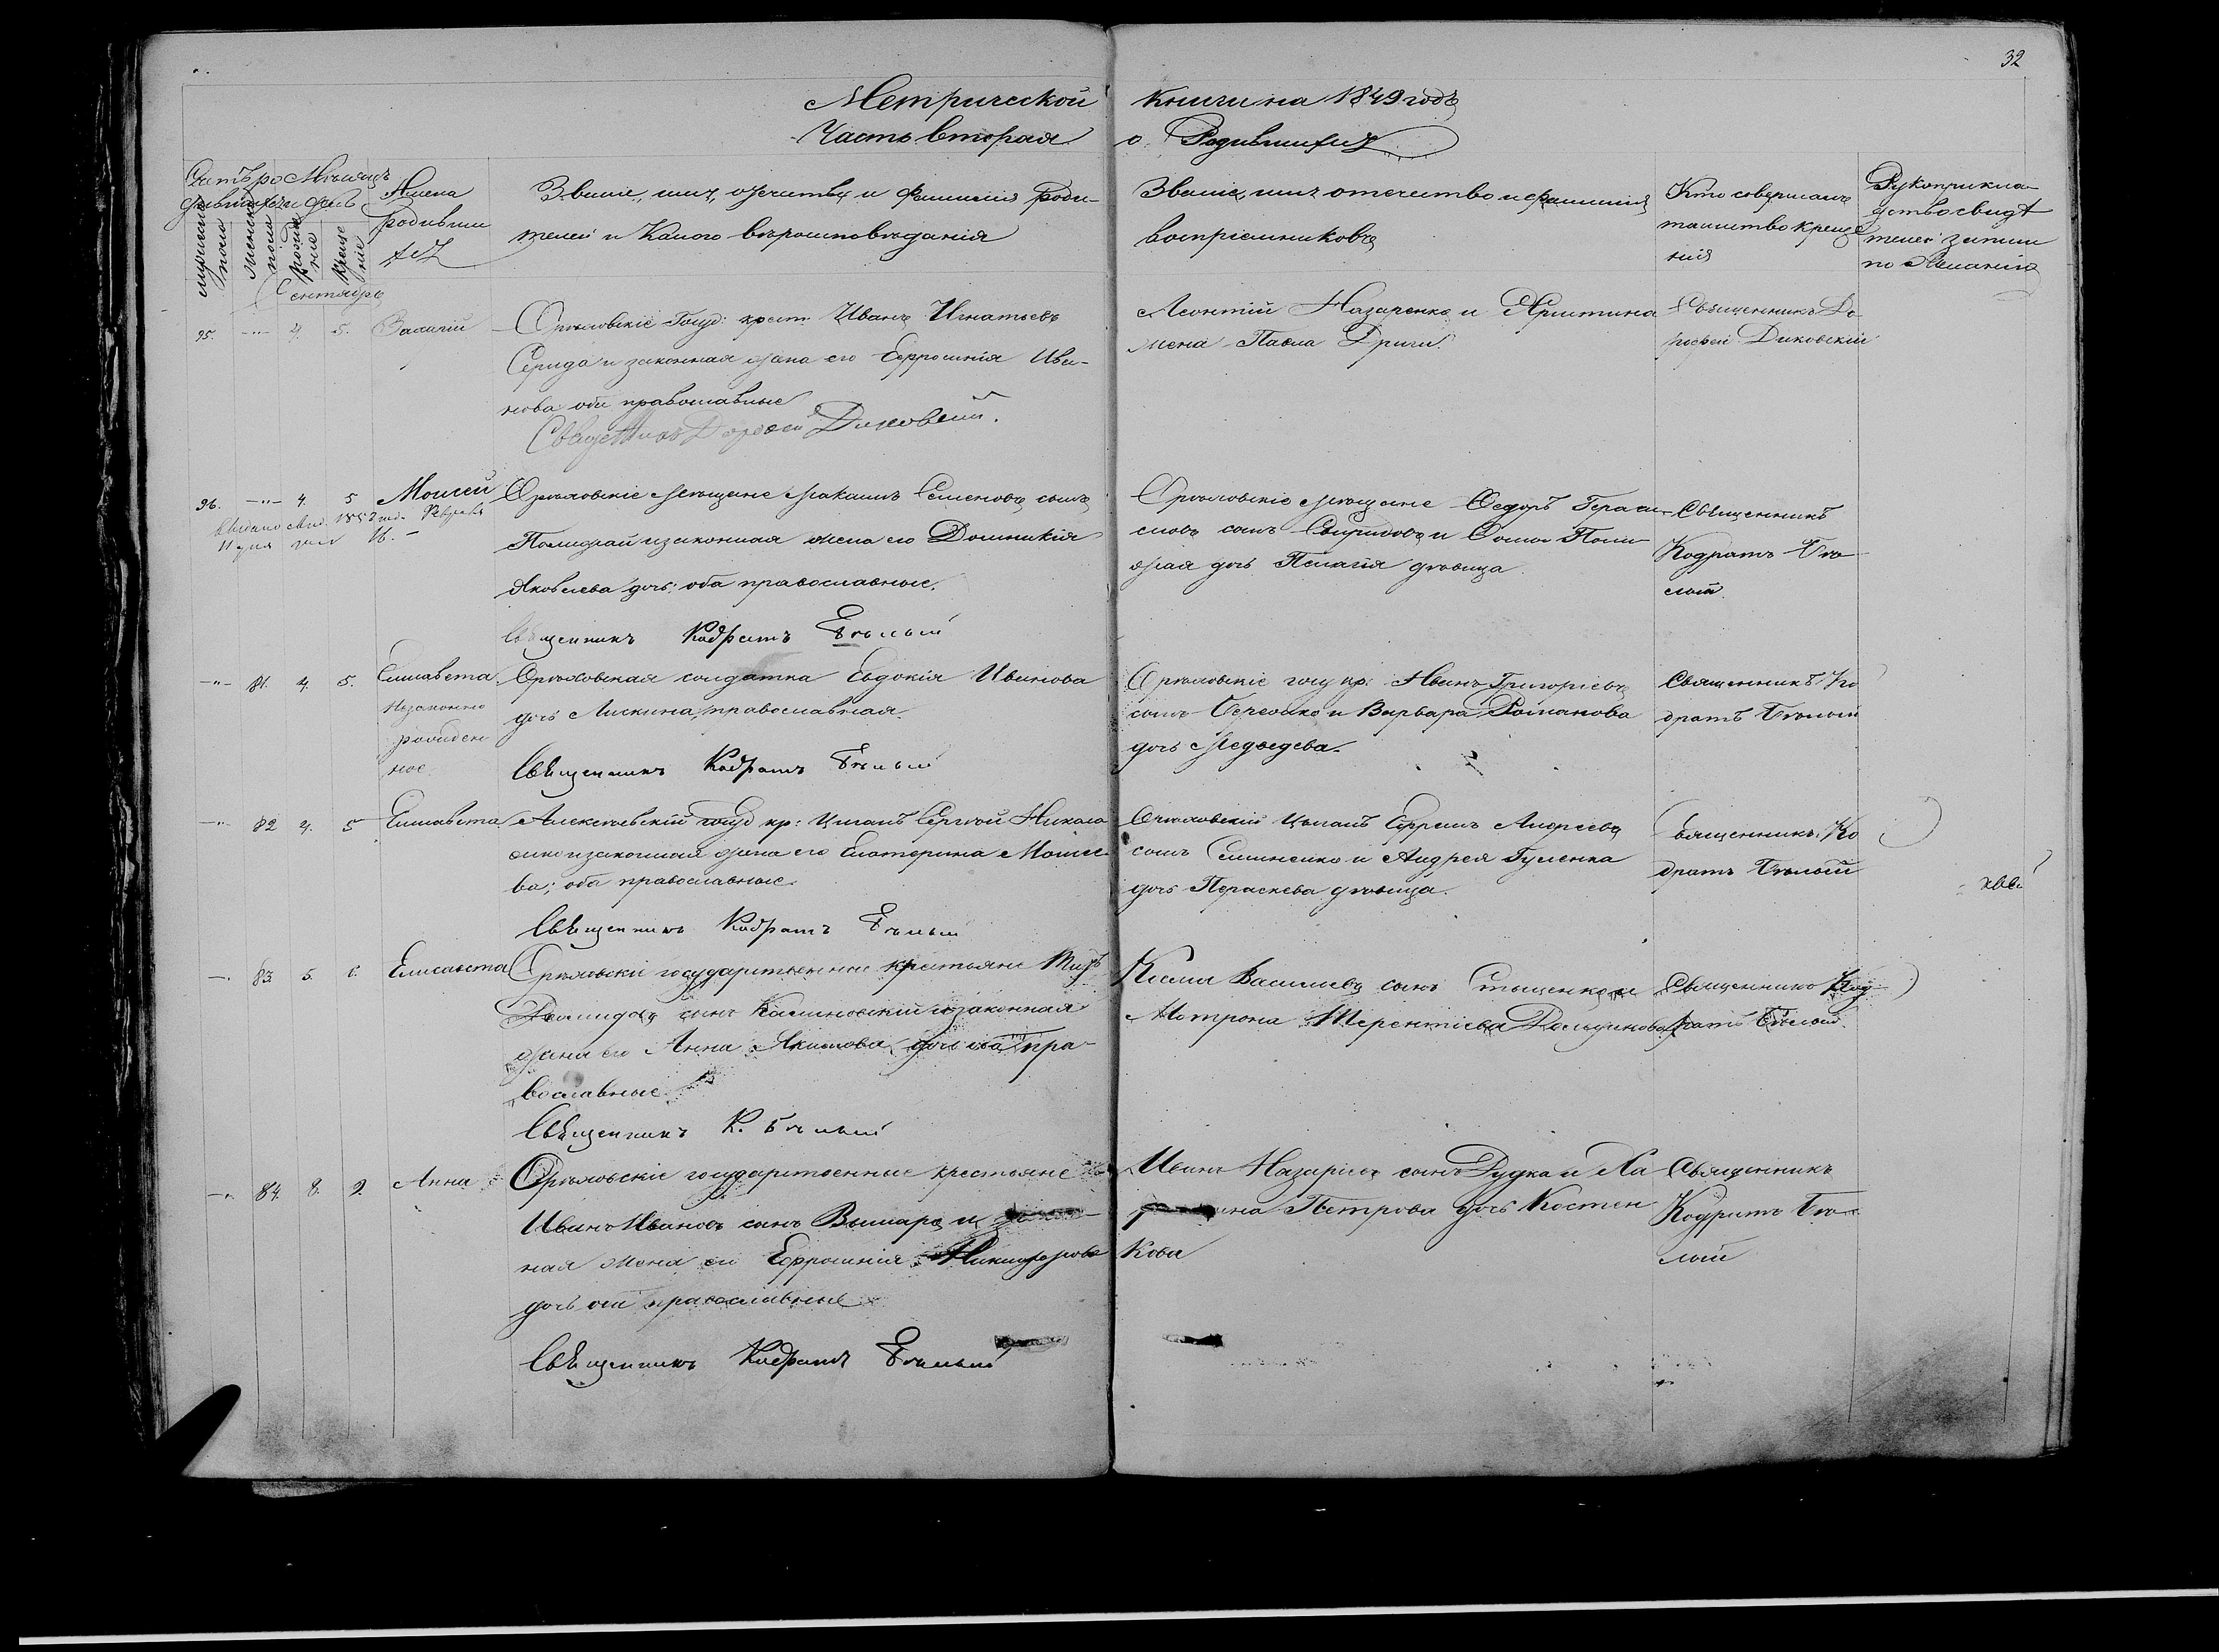 32
Метрической книги на 1849 годъ
Часть вторая о Родившихся
Счетъ ро Мѣсяцъ
дившихся и день
мужеска пола
женска пола
рожденіе
крещеніе
Имена
родивши
хся
Званіе, имя, отчество и фамилія роди-
телей и какого вѣроисповѣданія
Званіе, имя отечество и фамилія
воспріемниковъ
Кто совершалъ
таинство креще
нія
Рукоприкла
дство свидѣ
телей записи
по желанію
Сентябрь
95. -"- 4. 5.
Орѣховскіе Госуд: крест: Иванъ Игнатьевъ
Середа и законная жена его Ефросинія Ива-
нова оба православные
Священникъ Дорофей Диковскій.
Леонтій Назаренко и Христина
жена Павла Дриги
Священникъ До
рофей Диковскій
96. -"- 4. 5 Моисей
Выдано свид. 1852 год. Февраля
11 дня за № 16.-
Орѣховскіе мѣщане Максимъ Семеновъ сынъ
и законная жена его Домникія
Яковлева дочь: оба православные.
Священникъ Кодратъ Бѣлый
Орѣховскіе мѣщане Федоръ Гераси
мовъ сынъ Свиридовъ и
дочь Пелагія дѣвица
Священникъ
Кодратъ Бѣ
лый.
-"- 81. 4. 5. Елисавета
незаконно
рожден
ное
Орѣховская солдатка Евдокія Иванова
дочь Лискина, православная.
Священникъ Кодратъ Бѣлый
Орѣховскіе госу кр: Иванъ Григорьевъ
сынъ и Варвара Романова
дочь Медведева.
Священникъ Ко
дратъ Бѣлый
-"- 82 4. 5 Елисавета
Алексѣевскій госуд кр: Циганъ Сергѣй Никола
енко и законная жена его Екатерина Моисее
ва; оба православные.
Священникъ Кодратъ Бѣлый
Орѣховскій Цыганъ Ефремъ Андреевъ
сынъ и Андрея Гуленка
дочь Параскева дѣвица.
Священникъ Ко
дратъ Бѣлый
-"- 83 5. 6. Елисавета
Орѣховскіе государственные крестьяне
сынъ Калиновскій и законная
жена его Анна Якимова дочь оба пра-
вославные.
Священникъ К. Бѣлый
Косма Василіевъ сынъ и
Мотрона Терентіева
Священникъ Код
ратъ Бѣлый.
-"- 84. 8. 9. Анна
Орѣховскіе государственные крестьяне
Иванъ Ивановъ сынъ и закон-
ная жена его Ефросинія Никифорова
дочь оба православные
Священникъ Кодратъ Бѣлый
Иванъ Назаріевъ сынъ Дудка и
Петрова дочь Костен
кова
Священникъ
Кодратъ Бѣ
лый